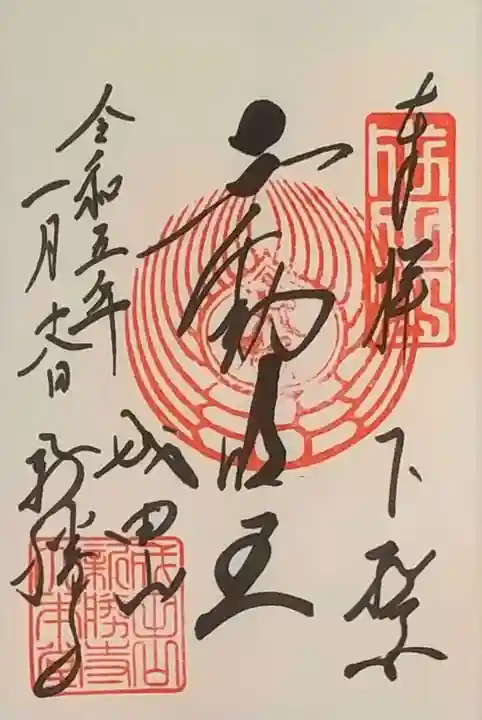 奉拝
下総
不動明王
成田山
新勝寺
令和五年
一月十八日
成田山
新勝寺
大本堂